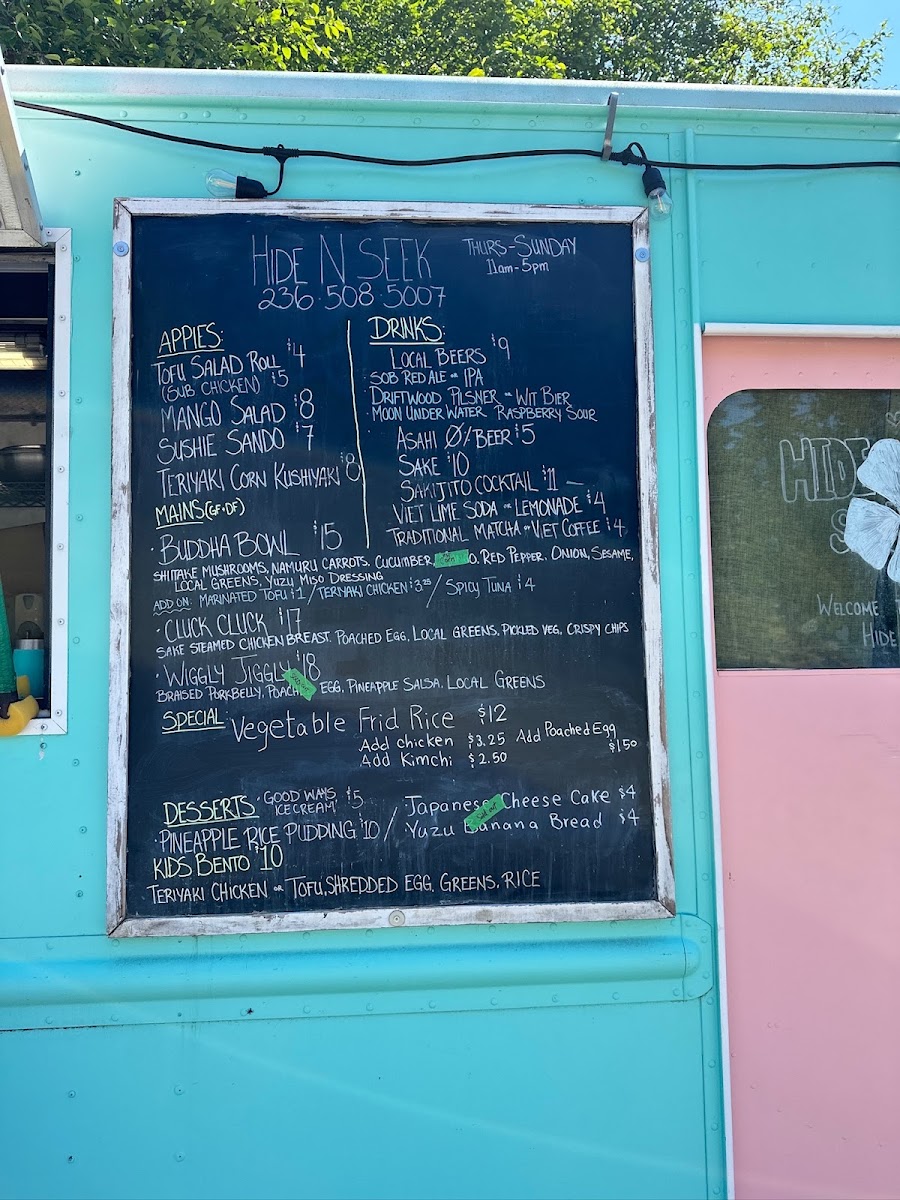 HIDE N SEEK
236·508·5007
THURS-SUNDAY
11am-5pm
APPIES:
TOFU SALAD ROLL $4
(SUB CHICKEN) $5
MANGO SALAD $8
SUSHIE SANDO $7
TERIYAKI CORN KUSHIYAKI $8
DRINKS:
LOCAL BEERS $9
SOB RED ALE or IPA
· DRIFTWOOD PILSNER or WIT BIER
· MOON UNDER WATER RASPBERRY SOUR
ASAHI Ø/BEER $5
SAKE $10
SAKIJITO COCKTAIL $11 —
VIET LIME SODA or LEMONADE $4
TRADITIONAL MATCHA or VIET COFFEE $4
MAINS (GF·DF)
· BUDDHA BOWL $15
SHIITAKE MUSHROOMS, NAMURU CARROTS, CUCUMBER, Corn O, RED PEPPER, ONION, SESAME,
LOCAL GREENS, YUZU MISO DRESSING
ADD ON: MARINATED TOFU $1 / TERIYAKI CHICKEN $3.25 / SPICY TUNA $4
· CLUCK CLUCK $17
SAKE STEAMED CHICKEN BREAST, POACHED EGG, LOCAL GREENS, PICKLED VEG, CRISPY CHIPS
· WIGGLY JIGGLY $18
BRAISED PORKBELLY, POACH EGG, PINEAPPLE SALSA, LOCAL GREENS
SPECIAL Vegetable Frid Rice $12
Add chicken $3.25 Add Poached Egg $1.50
Add Kimchi $2.50
DESSERTS · GOOD WAYS ICE CREAM $5
· PINEAPPLE RICE PUDDING $10 /
Japanese Cheese Cake $4
Sold out
Yuzu Banana Bread $4
KIDS BENTO $10
TERIYAKI CHICKEN or TOFU, SHREDDED EGG, GREENS, RICE
HIDE
S
WELCOME
HIDE